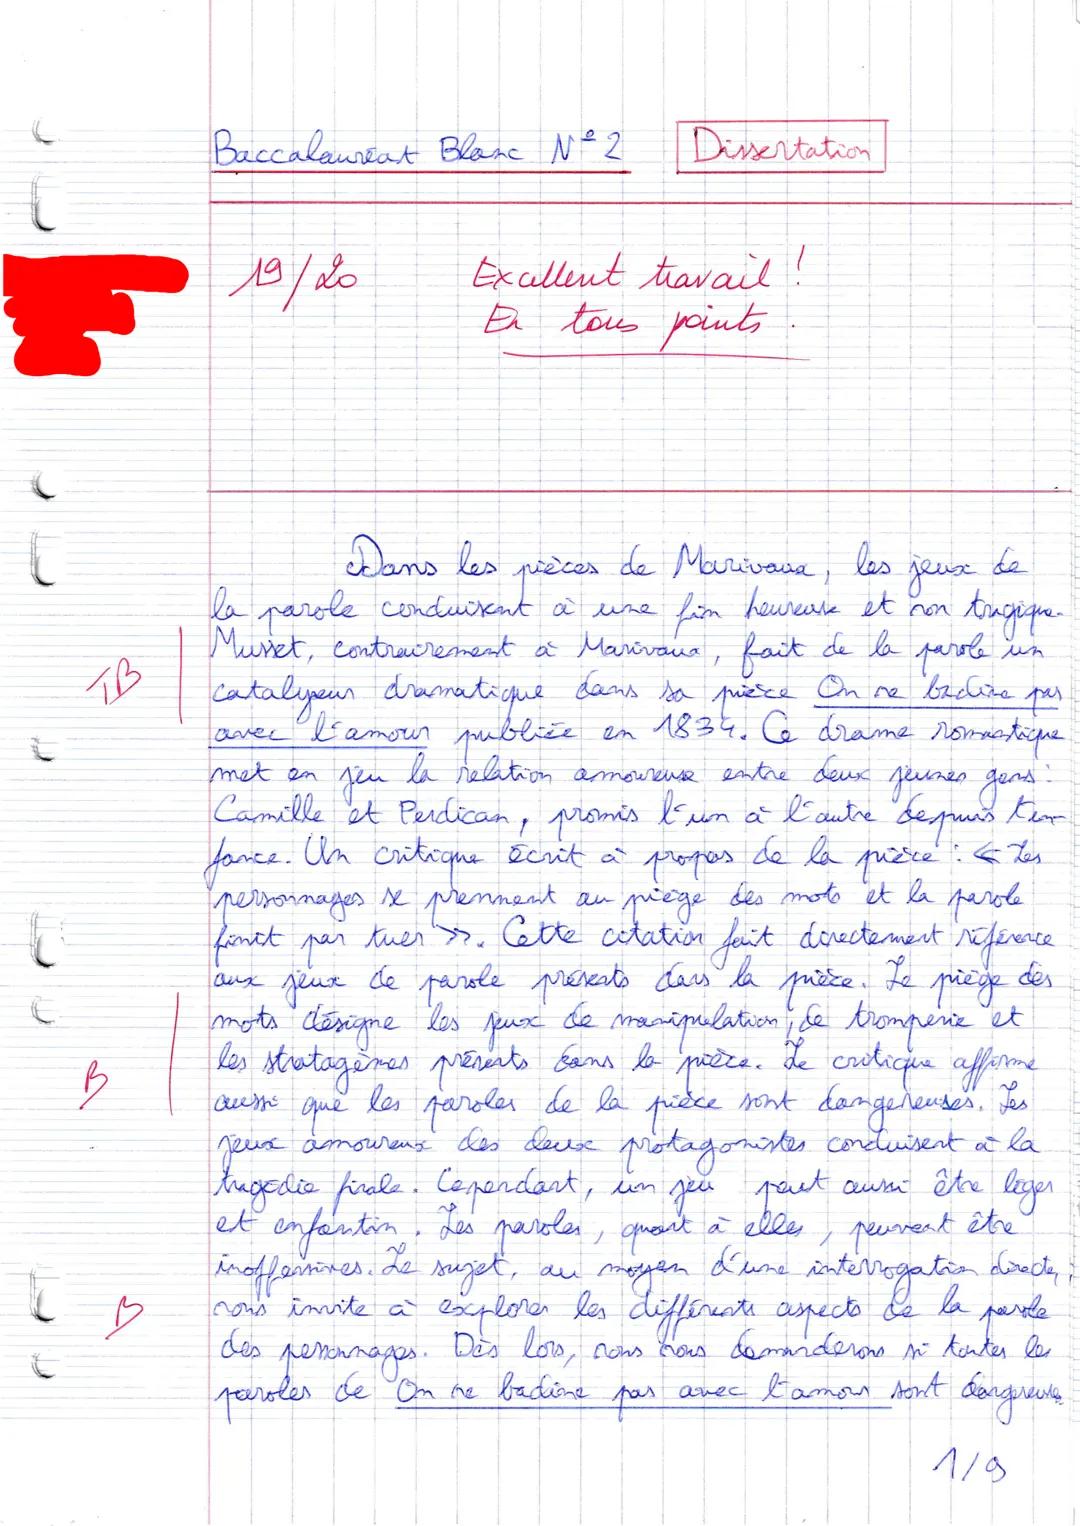 Baccalauréat Blanc N°2 Dissertation
19/20 Excellent travail !
En tous points.
Dans les pièces de Marivaux, les jeux de
la parole conduisent à une fin heureuse et non tragique.
Musset, contrairement à Marivaux, fait de la parole un
TB
catalyseur dramatique dans sa pièce On ne badine pas
avec l'amour publiée en 1834. Ce drame romantique
met en jeu la relation amoureuse entre deux jeunes gens :
Camille et Perdican, promis l'un à l'autre depuis l'en-
fance. Un critique écrit à propos de la pièce : « Les
personnages se prennent au piège des mots et la parole
finit par tuer ». Cette citation fait directement référence
aux jeux de parole présents dans la pièce. Le piège des
mots désigne les jeux de manipulation, de tromperie et
les stratagèmes présents dans la pièce. Le critique affirme
B
aussi que les paroles de la pièce sont dangereuses. Les
jeux amoureux des deux protagonistes conduisent à la
tragédie finale. Cependant, un jeu peut aussi être léger
et enfantin. Les paroles, quant à elles, peuvent être
inoffensives. Le sujet, au moyen d'une interrogation directe,
B
nous invite à explorer les différents aspects de la parole
des personnages. Dès lors, nous nous demanderons si toutes les
paroles de On ne badine pas avec l'amour sont dangereuses
1/9